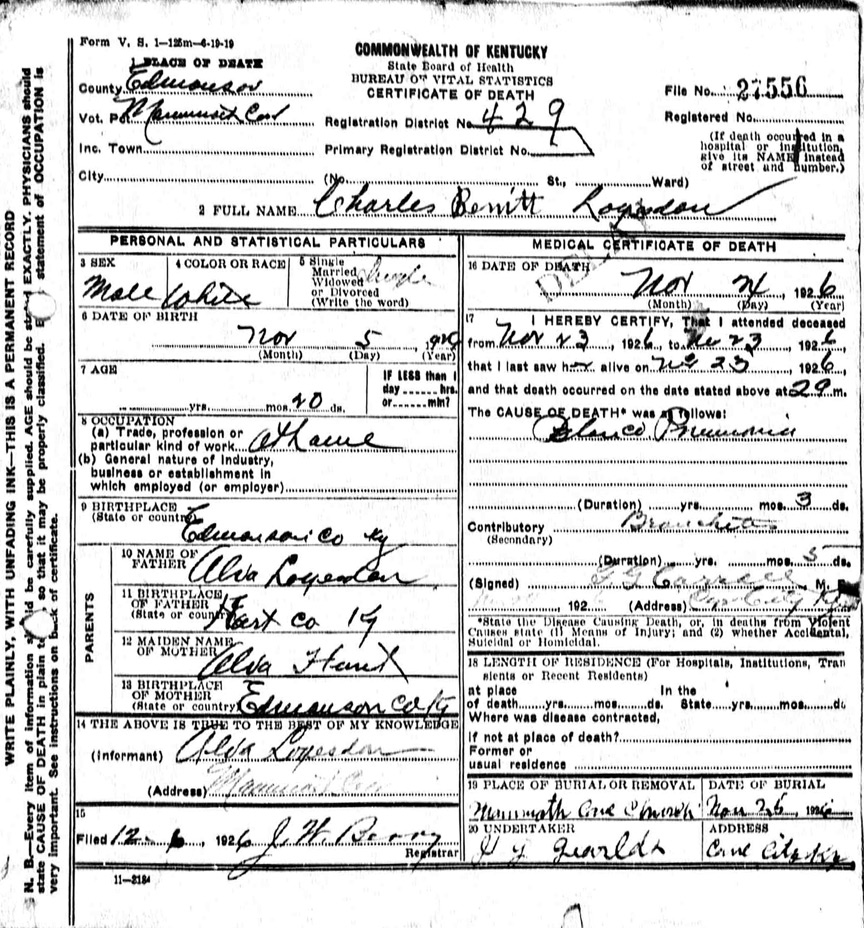 Form V. S. 1—125m—6-19-19
COMMONWEALTH OF KENTUCKY
State Board of Health
BUREAU OF VITAL STATISTICS
CERTIFICATE OF DEATH
1 PLACE OF DEATH
County Edmonson
Vot. Pct. Mammoth Cave
Inc. Town
City
Registration District No. 429
Primary Registration District No.
(No. St., Ward)
File No. 27556
Registered No.
(If death occurred in a
hospital or institution,
give its NAME instead
of street and number.)
2 FULL NAME Charles Logsdon
PERSONAL AND STATISTICAL PARTICULARS
3 SEX
Male
4 COLOR OR RACE
White
5 Single
Married
Widowed
or Divorced
(Write the word)
Single
6 DATE OF BIRTH
Nov 5
(Month) (Day) (Year)
7 AGE
yrs. mos. 20 ds.
IF LESS than 1
day hrs.
or min?
8 OCCUPATION
(a) Trade, profession or
particular kind of work At Home
(b) General nature of industry,
business or establishment in
which employed (or employer)
9 BIRTHPLACE
(State or country)
Edmonson Co Ky
PARENTS
10 NAME OF
FATHER
Alva Logsdon
11 BIRTHPLACE
OF FATHER
(State or country)
Hart Co Ky
12 MAIDEN NAME
OF MOTHER
Alva
13 BIRTHPLACE
OF MOTHER
(State or country) Edmonson Co Ky
14 THE ABOVE IS TRUE TO THE BEST OF MY KNOWLEDGE
(Informant) Alva Logsdon
(Address) Mammoth Cave
15
Filed 12-6 1926 J. W. Berry
Registrar
11—3184
MEDICAL CERTIFICATE OF DEATH
16 DATE OF DEATH
Nov 24, 1926
(Month) (Day) (Year)
17 I HEREBY CERTIFY, That I attended deceased
from Nov 23, 1926, to Nov 23, 1926,
that I last saw h alive on Nov 23, 1926,
and that death occurred on the date stated above at m.
The CAUSE OF DEATH* was as follows:
Pneumonia
(Duration) yrs. mos. 3 ds.
Contributory Bronchitis
(Secondary)
(Duration) yrs. mos. 5 ds.
(Signed) M. D.
192 (Address) Ky
*State the Disease Causing Death, or, in deaths from Violent
Causes state (1) Means of Injury; and (2) whether Accidental,
Suicidal or Homicidal.
18 LENGTH OF RESIDENCE (For Hospitals, Institutions, Tran
sients or Recent Residents)
at place In the
of death yrs. mos. ds. State yrs. mos. ds
Where was disease contracted,
If not at place of death?
Former or
usual residence
19 PLACE OF BURIAL OR REMOVAL
Mammoth Cave Church
DATE OF BURIAL
Nov 25, 1926
20 UNDERTAKER
ADDRESS
Cave City Ky
WRITE PLAINLY, WITH UNFADING INK—THIS IS A PERMANENT RECORD
N. B.—Every item of information should be carefully supplied. AGE should be stated EXACTLY. PHYSICIANS should
state CAUSE OF DEATH in plain so that it may be properly classified. statement of OCCUPATION is
very important. See instructions on back of certificate.